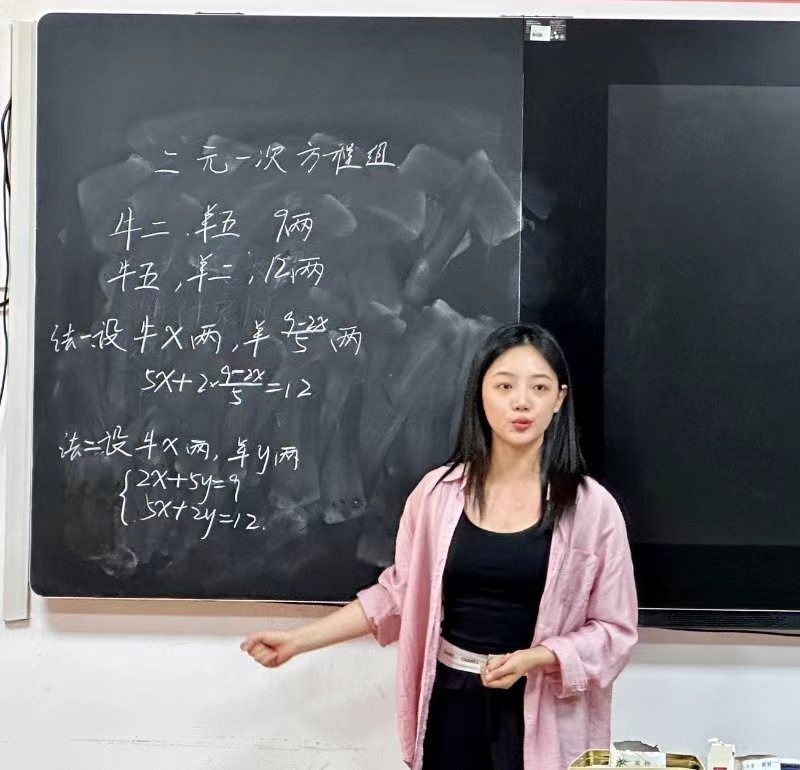 二元一次方程组
牛二.羊五 9两
牛五,羊二,12两
法一:设牛x两,羊(9-2x)/5两
5x+2×(9-2x)/5=12
法二:设牛x两,羊y两
{2x+5y=9
5x+2y=12.
CHANEL